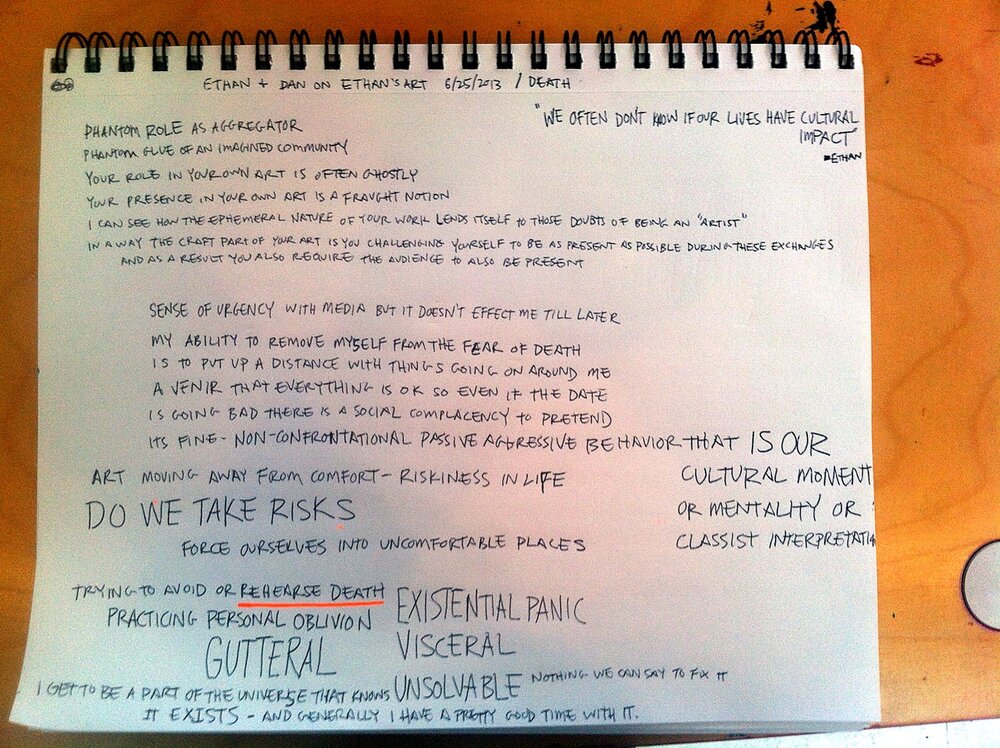 ETHAN + DAN ON ETHAN'S ART 6/25/2013 / DEATH
"WE OFTEN DON'T KNOW IF OUR LIVES HAVE CULTURAL
IMPACT"
-ETHAN
PHANTOM ROLE AS AGGREGATOR
PHANTOM GLUE OF AN IMAGINED COMMUNITY
YOUR ROLE IN YOUR OWN ART IS OFTEN GHOSTLY
YOUR PRESENCE IN YOUR OWN ART IS A FRAUGHT NOTION
I CAN SEE HOW THE EPHEMERAL NATURE OF YOUR WORK LENDS ITSELF TO THOSE DOUBTS OF BEING AN "ARTIST"
IN A WAY THE CRAFT PART OF YOUR ART IS YOU CHALLENGING YOURSELF TO BE AS PRESENT AS POSSIBLE DURING THESE EXCHANGES
AND AS A RESULT YOU ALSO REQUIRE THE AUDIENCE TO ALSO BE PRESENT
SENSE OF URGENCY WITH MEDIA BUT IT DOESN'T EFFECT ME TILL LATER
MY ABILITY TO REMOVE MYSELF FROM THE FEAR OF DEATH
IS TO PUT UP A DISTANCE WITH THINGS GOING ON AROUND ME
A VENIR THAT EVERYTHING IS OK SO EVEN IF THE DATE
IS GOING BAD THERE IS A SOCIAL COMPLACENCY TO PRETEND
ITS FINE - NON-CONFRONTATIONAL PASSIVE AGGRESSIVE BEHAVIOR THAT IS OUR
CULTURAL MOMENT
OR MENTALITY OR
CLASSIST INTERPRETATIO
ART MOVING AWAY FROM COMFORT - RISKINESS IN LIFE
DO WE TAKE RISKS
FORCE OURSELVES INTO UNCOMFORTABLE PLACES
TRYING TO AVOID OR REHEARSE DEATH
PRACTICING PERSONAL OBLIVION
GUTTERAL
EXISTENTIAL PANIC
VISCERAL
UNSOLVABLE NOTHING WE CAN SAY TO FIX IT
I GET TO BE A PART OF THE UNIVERSE THAT KNOWS
IT EXISTS - AND GENERALLY I HAVE A PRETTY GOOD TIME WITH IT.